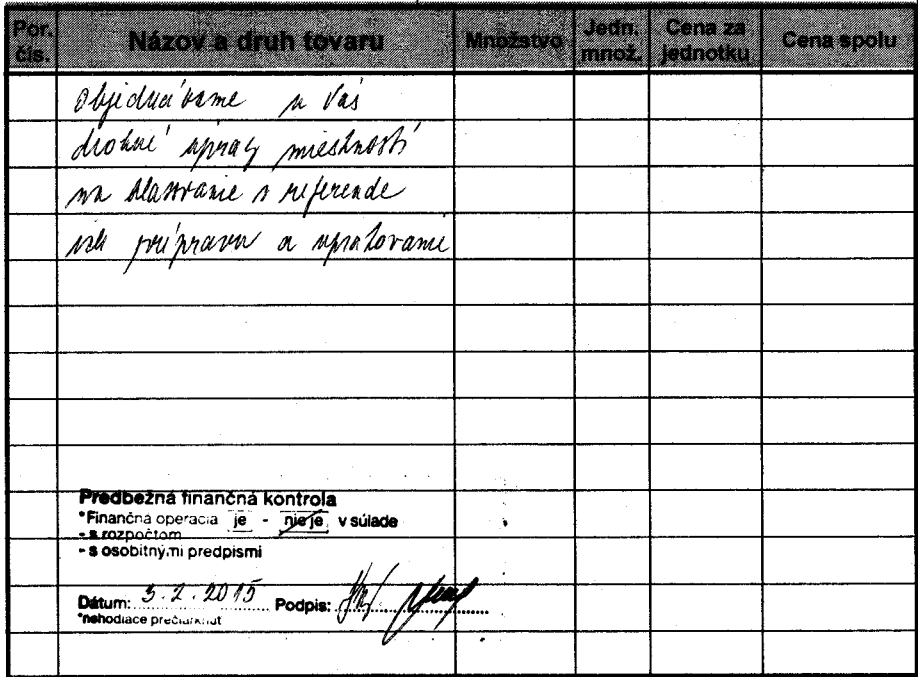 Por. čís. Názov a druh tovaru Množstvo Jedn. množ. Cena za jednotku Cena spolu
Objednávame u Vás
drobné úpravy miestností
na hlasovanie v referende
ich prípravu a upratovanie
Predbežná finančná kontrola
*Finančná operácia je - nie je v súlade
- s rozpočtom
- s osobitnými predpismi
Dátum: 3.2.2015 Podpis:
*nehodiace prečiarknuť